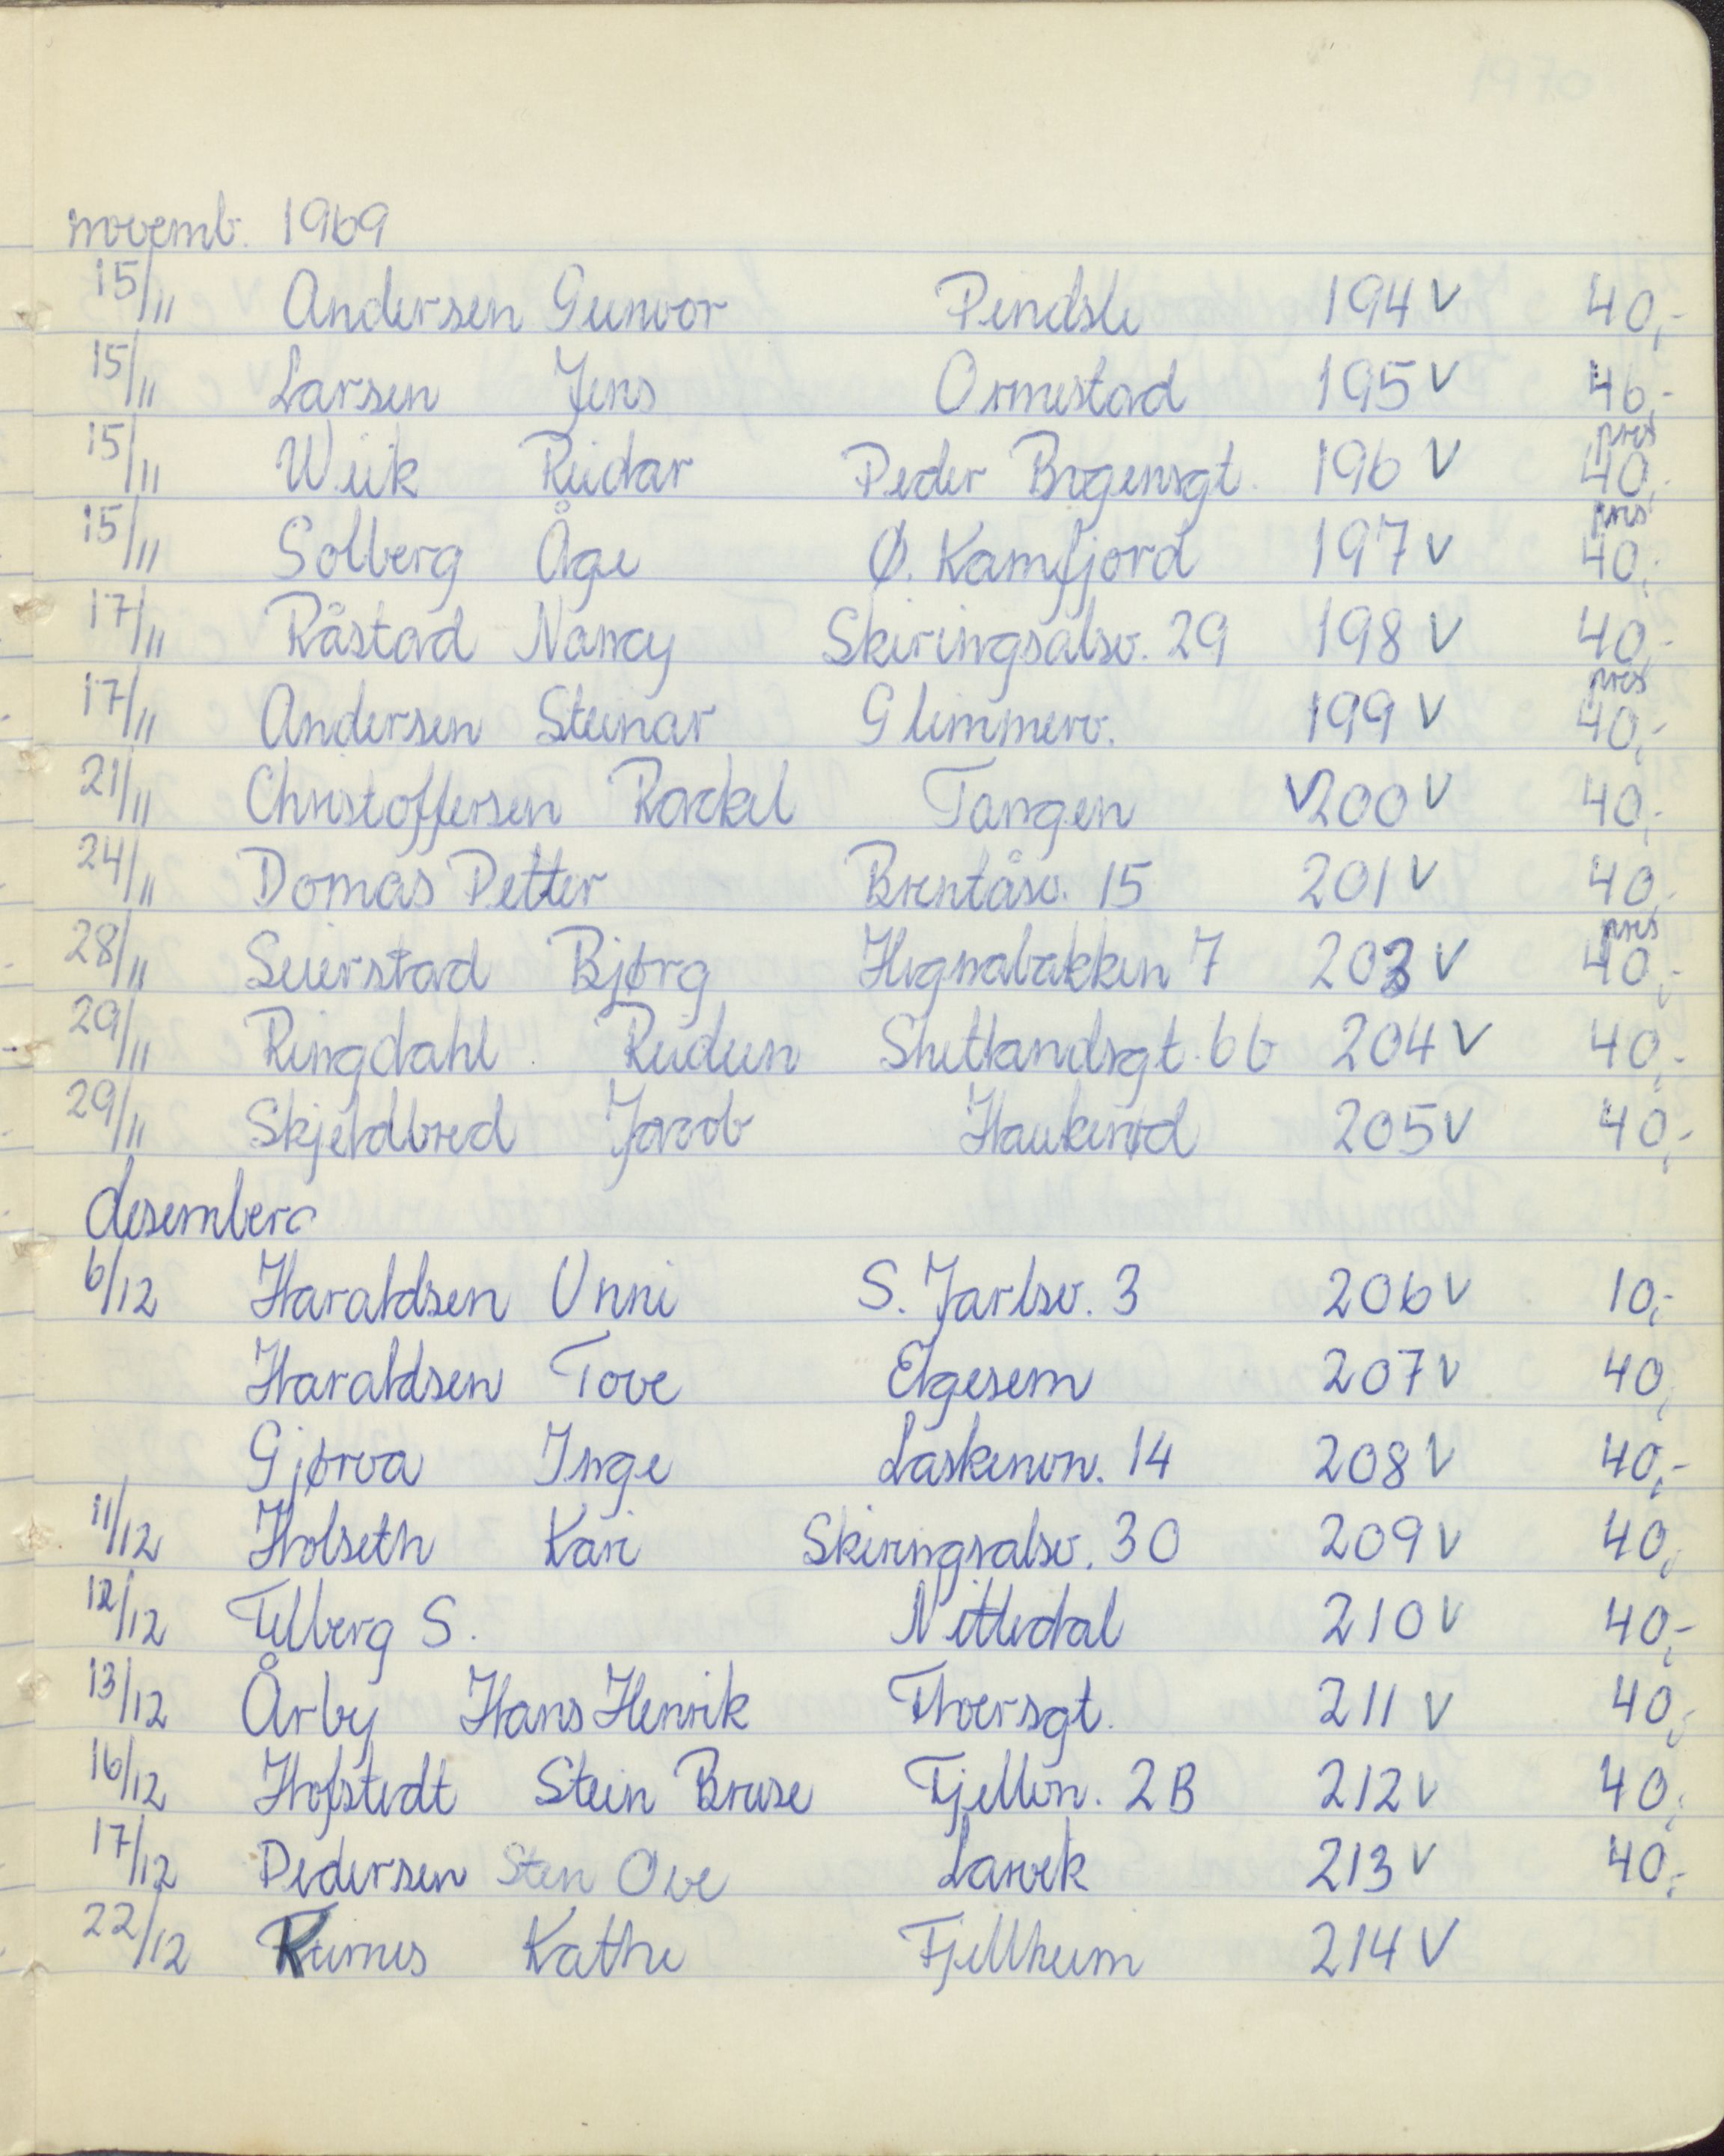 novemb. 1969
15/11 Andersen Gunvor Pindsle 194 V 40,-
15/11 Larsen Jens Ormestad 195 V 40,-
15/11 Weik Reidar Peder Bogensgt. 196 V pres 40,-
15/11 Solberg Åge Ø. Kamfjord 197 V pres 40,-
17/11 Råstad Nancy Skiringsalsv. 29 198 V 40,-
17/11 Andersen Steinar Glimmerv. 199 V pres 40,-
21/11 Christoffersen Rackel Tangen V 200 V 40,-
24/11 Domas Petter Brentåsv. 15 201 V 40,-
28/11 Seierstad Bjørg Hegnabakken 7 203 V pres 40,-
29/11 Ringdahl Reidun Shetlandsgt. 6b 204 V 40,-
29/11 Skjeldbred Jacob Haukerød 205 V 40,-
desember
6/12 Haraldsen Unni S. Jarlsv. 3 206 V 10,-
Haraldsen Tove Elgesem 207 V 40,
Gjørva Inge Laskenvn. 14 208 V 40,-
11/12 Holseth Kari Skiringsalsv. 30 209 V 40,
12/12 Telberg S. Nittedal 210 V 40,-
13/12 Årby Hans Henrik Thorsgt. 211 V 40,
16/12 Hofstedt Stein Bruse Fjellvn. 2B 212 V 40,
17/12 Pedersen Sten Ove Larvik 213 V 40,-
22/12 Reirnes Kathe Fjellheim 214 V